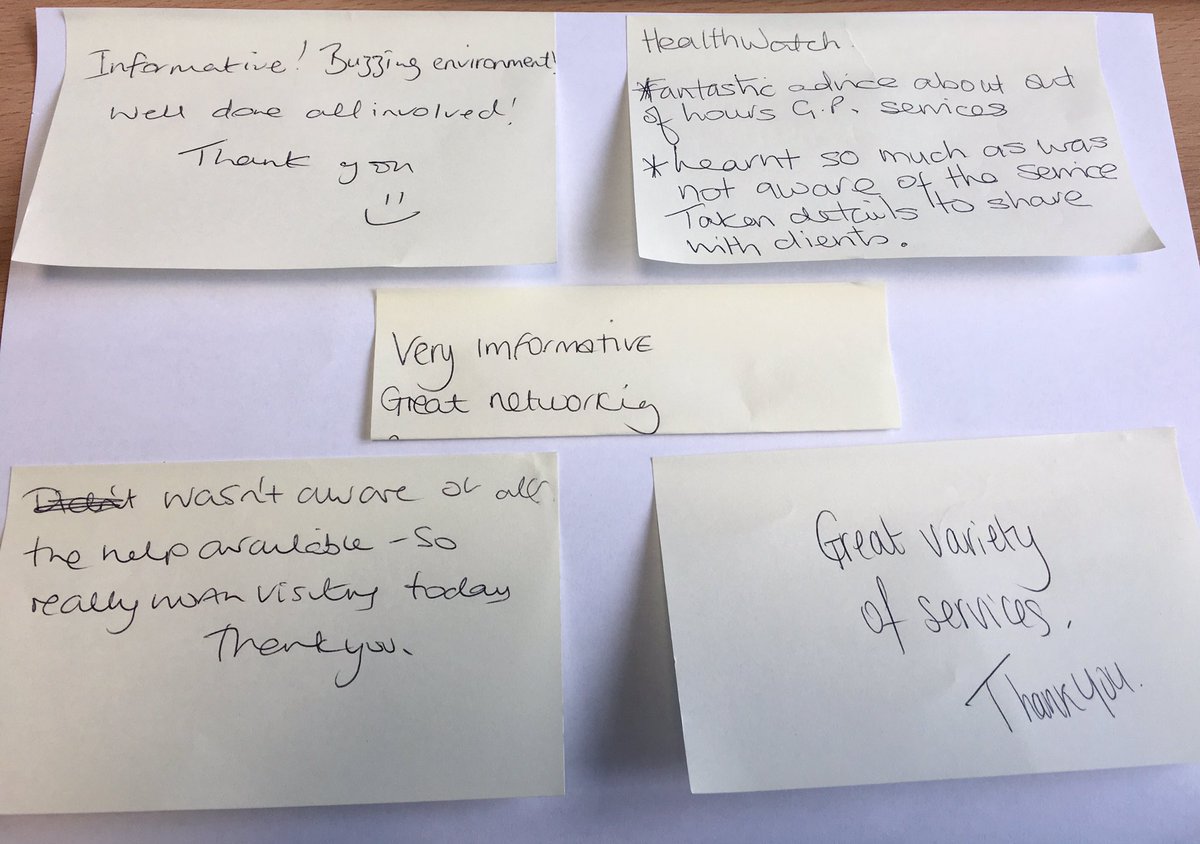 Informative! Buzzing environment!
Well done all involved!
Thank you
HealthWatch.
*Fantastic advice about out
of hours G.P. services
*Learnt so much as was
not aware of the service
Taken details to share
with clients.
Very imformative
Great networkig
wasn't aware of all
the help available - So
really worth visiting today
Thankyou.
Great variety
of services.
Thank you.